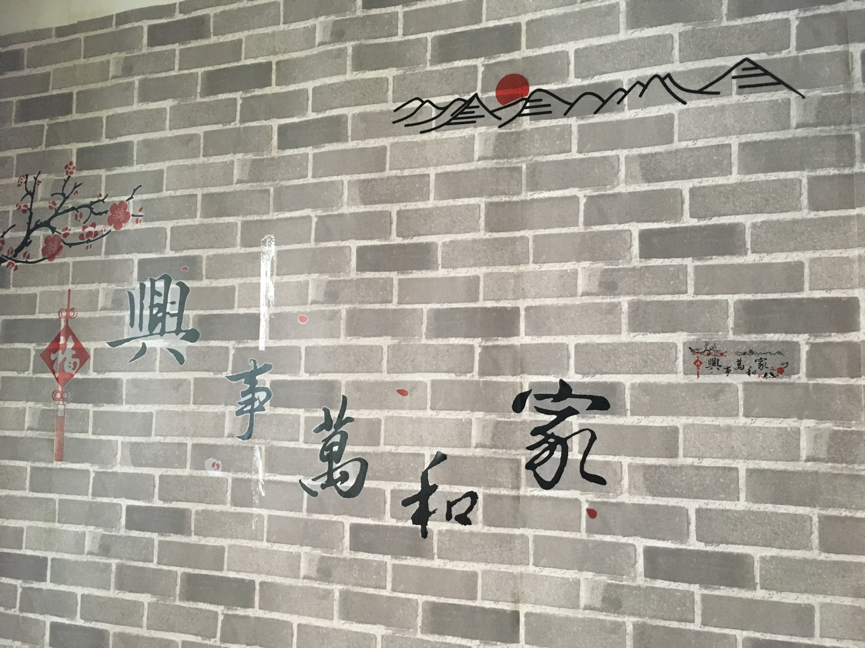 家和萬事興
福
家和萬事興